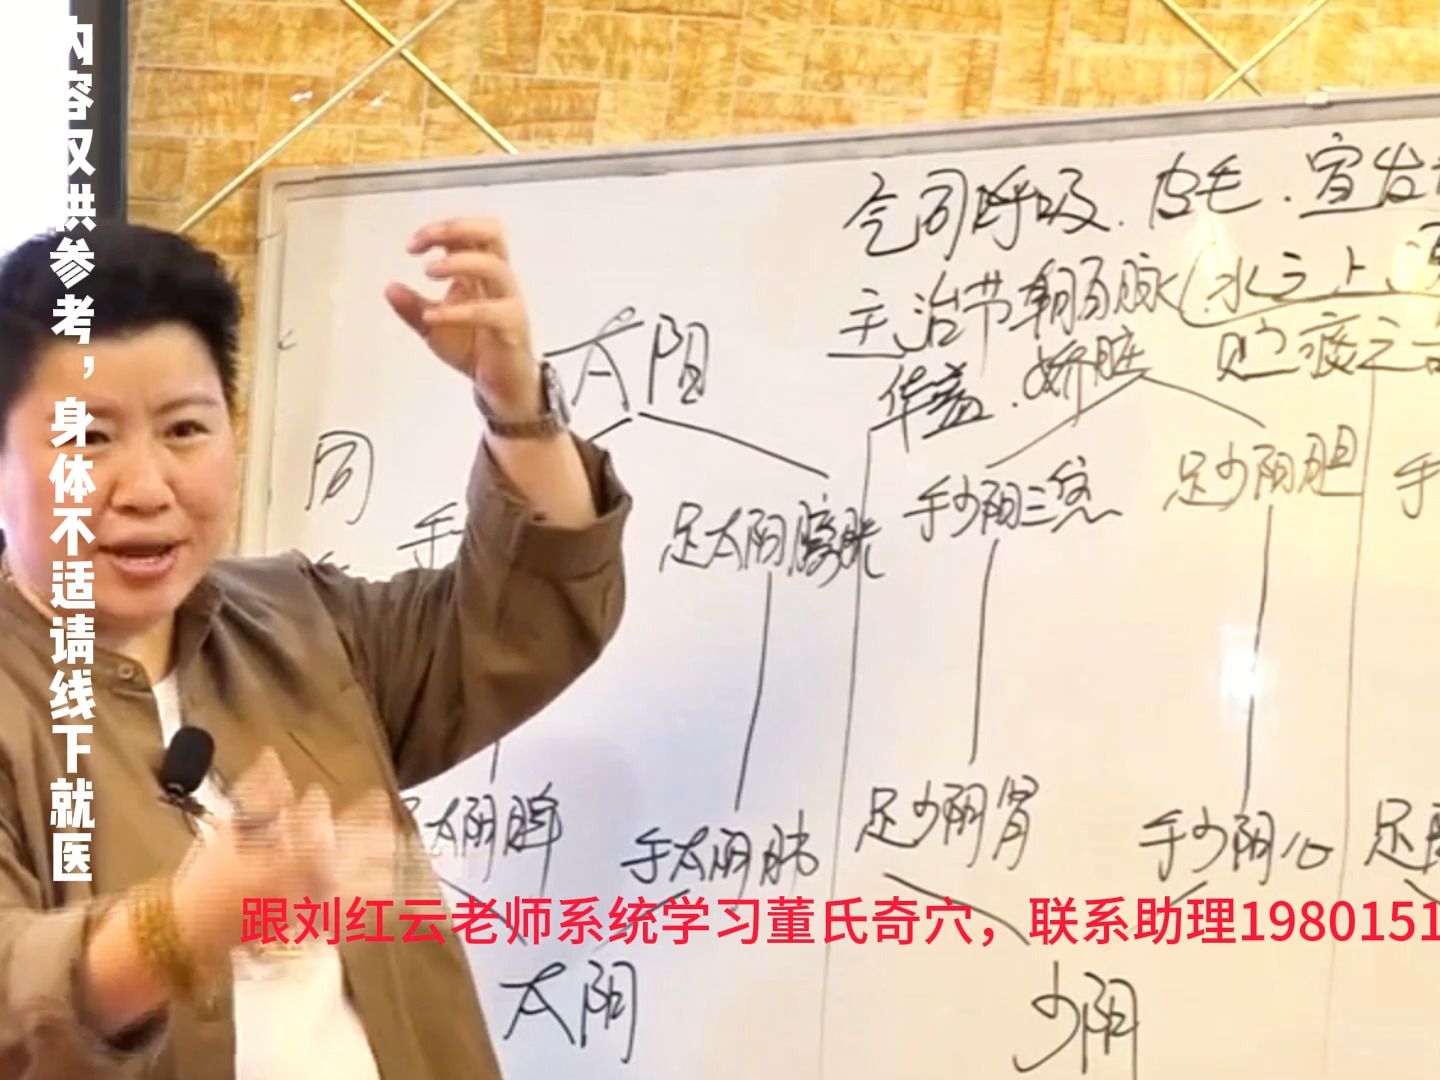 内容仅供参考，身体不适请线下就医
气司呼吸.皮毛.宣发
主治节朝百脉（水之上
华盖.娇脏 贮痰之
太阳
足太阳膀胱
手少阳三焦
足少阳胆
手
足太阴脾
手太阴肺
足少阴肾
手少阴心
足
跟刘红云老师系统学习董氏奇穴，联系助理1980151
太阴
少阴